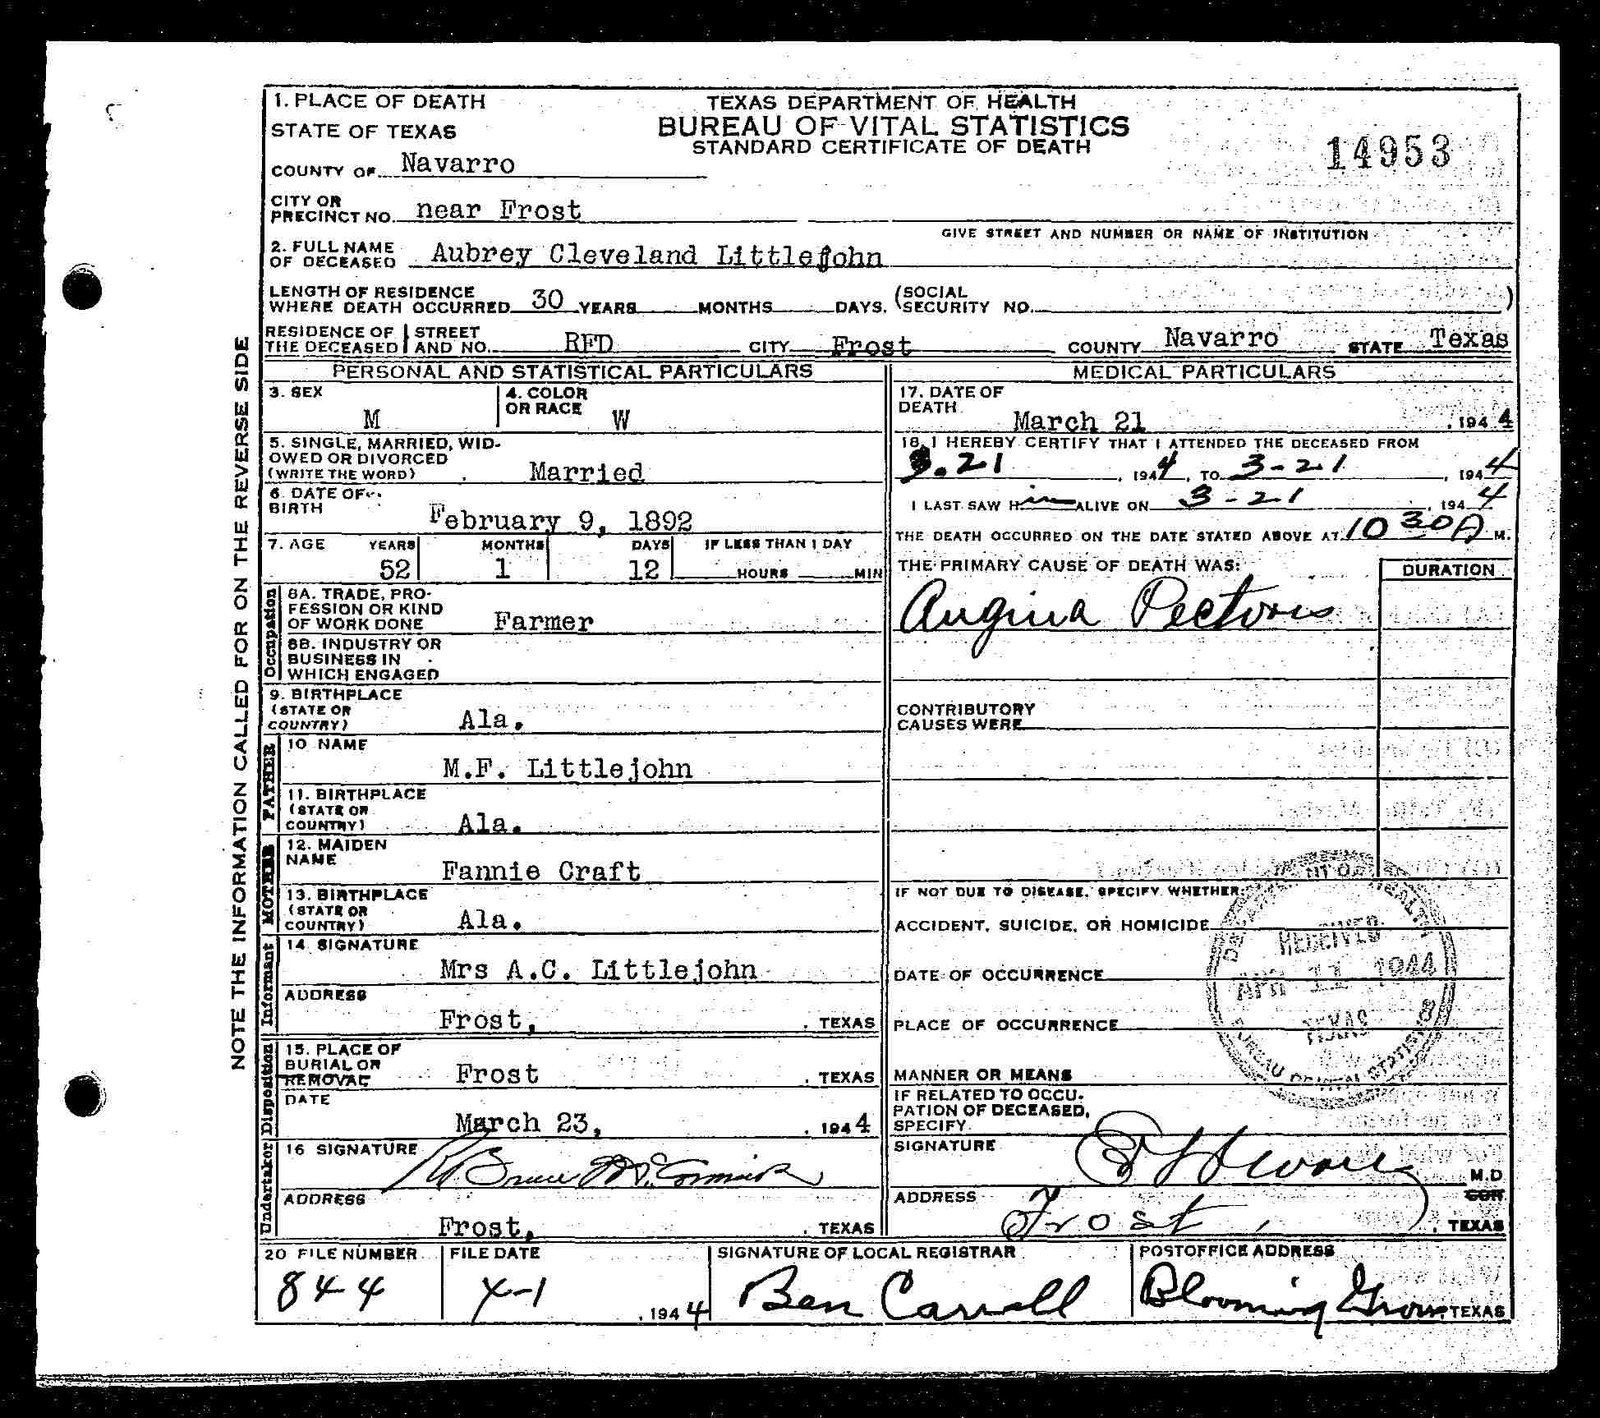 TEXAS DEPARTMENT OF HEALTH
BUREAU OF VITAL STATISTICS
STANDARD CERTIFICATE OF DEATH
14953
1. PLACE OF DEATH
STATE OF TEXAS
COUNTY OF Navarro
CITY OR
PRECINCT NO. near Frost
GIVE STREET AND NUMBER OR NAME OF INSTITUTION
2. FULL NAME
OF DECEASED Aubrey Cleveland Littlejohn
LENGTH OF RESIDENCE
WHERE DEATH OCCURRED 30 YEARS MONTHS DAYS. (SOCIAL
SECURITY NO. )
RESIDENCE OF THE DECEASED STREET AND NO. RFD CITY Frost COUNTY Navarro STATE Texas
NOTE THE INFORMATION CALLED FOR ON THE REVERSE SIDE
PERSONAL AND STATISTICAL PARTICULARS
3. SEX
M
4. COLOR
OR RACE W
5. SINGLE, MARRIED, WID-
OWED OR DIVORCED
(WRITE THE WORD) Married
6. DATE OF
BIRTH February 9, 1892
7. AGE YEARS MONTHS DAYS IF LESS THAN 1 DAY
52 1 12 HOURS MIN
Occupation
8A. TRADE, PRO-
FESSION OR KIND
OF WORK DONE Farmer
8B. INDUSTRY OR
BUSINESS IN
WHICH ENGAGED
9. BIRTHPLACE
(STATE OR
COUNTRY) Ala.
FATHER
10 NAME
M.F. Littlejohn
11. BIRTHPLACE
(STATE OR
COUNTRY) Ala.
MOTHER
12. MAIDEN
NAME Fannie Craft
13. BIRTHPLACE
(STATE OR
COUNTRY) Ala.
Informant
14. SIGNATURE
Mrs A.C. Littlejohn
ADDRESS
Frost, , TEXAS
Disposition
15. PLACE OF
BURIAL OR
REMOVAL Frost , TEXAS
DATE
March 23, , 1944
Undertaker
16 SIGNATURE Bruce McCormick
ADDRESS
Frost, , TEXAS
MEDICAL PARTICULARS
17. DATE OF
DEATH March 21 , 1944
18. I HEREBY CERTIFY THAT I ATTENDED THE DECEASED FROM
3.21 , 1944, TO 3-21 , 1944
I LAST SAW Him ALIVE ON 3-21 , 1944
THE DEATH OCCURRED ON THE DATE STATED ABOVE AT 10 30 A M.
THE PRIMARY CAUSE OF DEATH WAS: DURATION
Angina Pectoris
CONTRIBUTORY
CAUSES WERE
IF NOT DUE TO DISEASE, SPECIFY WHETHER:
ACCIDENT, SUICIDE, OR HOMICIDE
DATE OF OCCURRENCE
PLACE OF OCCURRENCE
MANNER OR MEANS
DEPARTMENT OF HEALTH
RECEIVED
APR 11 1944
TEXAS
BUREAU OF VITAL STATISTICS
IF RELATED TO OCCU-
PATION OF DECEASED,
SPECIFY
SIGNATURE M.D.
ADDRESS Frost, , TEXAS
20 FILE NUMBER
844
FILE DATE
4-1 , 1944
SIGNATURE OF LOCAL REGISTRAR
Ben Carroll
POSTOFFICE ADDRESS
Blooming Grove TEXAS